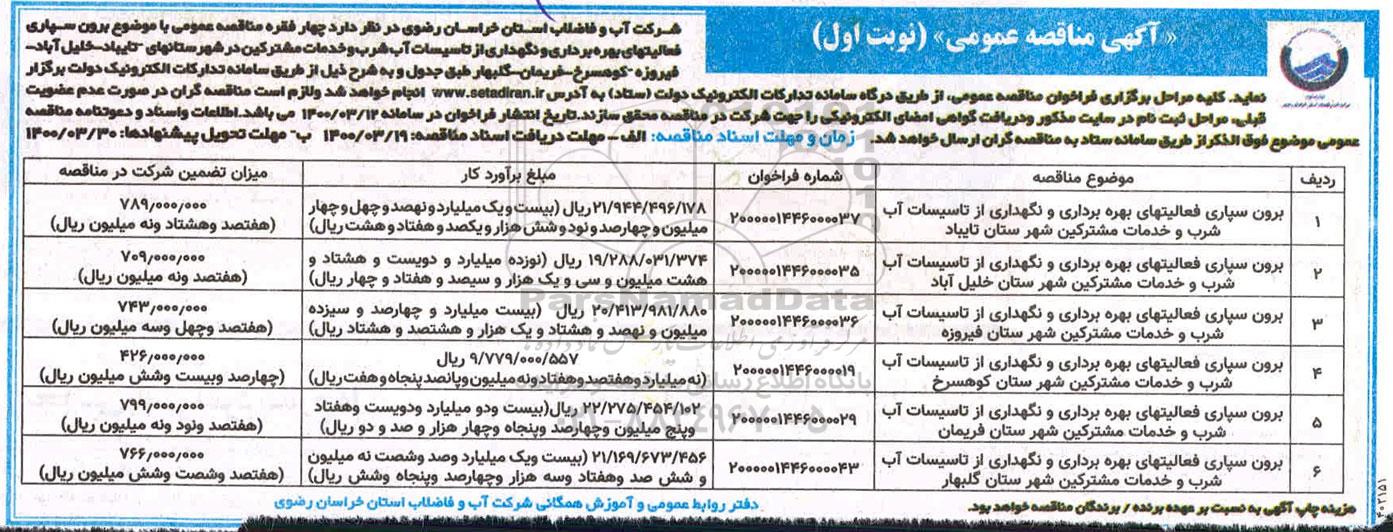 « آگهی مناقصه عمومی» (نوبت اول)
شرکت آب و فاضلاب استان خراسان رضوی در نظر دارد چهار فقره مناقصه عمومی با موضوع برون سپاری
فعالیتهای بهره برداری و نگهداری از تاسیسات آب شرب و خدمات مشترکین در شهرستانهای -تایباد-خلیل آباد-
فیروزه -کوهسرخ-فریمان-گلبهار طبق جدول و به شرح ذیل از طریق سامانه تدارکات الکترونیک دولت برگزار
نماید. کلیه مراحل برگزاری فراخوان مناقصه عمومی، از طریق درگاه سامانه تدارکات الکترونیک دولت (ستاد) به آدرس www.setadiran.ir انجام خواهد شد ولازم است مناقصه گران در صورت عدم عضویت
قبلی، مراحل ثبت نام در سایت مذکور ودریافت گواهی امضای الکترونیکی را جهت شرکت در مناقصه محقق سازند.تاریخ انتشار فراخوان در سامانه ۱۴۰۰/۰۳/۱۲ می باشد.اطلاعات واسناد و دعوتنامه مناقصه
عمومی موضوع فوق الذکر از طریق سامانه ستاد به مناقصه گران ارسال خواهد شد. زمان و مهلت اسناد مناقصه: الف - مهلت دریافت اسناد مناقصه: ۱۴۰۰/۰۳/۱۹ ب- مهلت تحویل پیشنهادها: ۱۴۰۰/۰۳/۳۰
ردیف موضوع مناقصه شماره فراخوان مبلغ برآورد کار میزان تضمین شرکت در مناقصه
۱ برون سپاری فعالیتهای بهره برداری و نگهداری از تاسیسات آب ۲۰۰۰۰۰۱۴۴۶۰۰۰۰۳۷ ۲۱/۹۴۴/۴۹۶/۱۷۸ ریال (بیست و یک میلیارد و نهصد و چهل و چهار ۷۸۹٫۰۰۰٫۰۰۰
شرب و خدمات مشترکین شهر ستان تایباد میلیون و چهارصد و نود و شش هزار و یکصد و هفتاد و هشت ریال) (هفتصد وهشتاد ونه میلیون ریال)
۲ برون سپاری فعالیتهای بهره برداری و نگهداری از تاسیسات آب ۲۰۰۰۰۰۱۴۴۶۰۰۰۰۳۵ ۱۹/۲۸۸/۰۳۱/۳۷۴ ریال (نوزده میلیارد و دویست و هشتاد و ۷۰۹٫۰۰۰٫۰۰۰
شرب و خدمات مشترکین شهر ستان خلیل آباد هشت میلیون و سی و یک هزار و سیصد و هفتاد و چهار ریال) (هفتصد ونه میلیون ریال)
۳ برون سپاری فعالیتهای بهره برداری و نگهداری از تاسیسات آب ۲۰۰۰۰۰۱۴۴۶۰۰۰۰۳۶ ۲۰/۴۱۳/۹۸۱/۸۸۰ ریال (بیست میلیارد و چهارصد و سیزده ۷۴۳٫۰۰۰٫۰۰۰
شرب و خدمات مشترکین شهر ستان فیروزه میلیون و نهصد و هشتاد و یک هزار و هشتصد و هشتاد ریال) (هفتصد وچهل وسه میلیون ریال)
۴ برون سپاری فعالیتهای بهره برداری و نگهداری از تاسیسات آب ۲۰۰۰۰۰۱۴۴۶۰۰۰۰۱۹ ۹/۷۷۹/۰۰۰/۵۵۷ ریال ۴۲۶٫۰۰۰٫۰۰۰
شرب و خدمات مشترکین شهر ستان کوهسرخ (نه میلیارد و هفتصد و هفتاد و نه میلیون و پانصد پنجاه و هفت ریال) (چهارصد وبیست وشش میلیون ریال)
۵ برون سپاری فعالیتهای بهره برداری و نگهداری از تاسیسات آب ۲۰۰۰۰۰۱۴۴۶۰۰۰۰۲۹ ۲۲/۲۷۵/۴۵۴/۱۰۲ ریال(بیست ودو میلیارد ودویست وهفتاد ۷۹۹٫۰۰۰٫۰۰۰
شرب و خدمات مشترکین شهر ستان فریمان وپنج میلیون وچهارصد وپنجاه وچهار هزار و صد و دو ریال) (هفتصد ونود ونه میلیون ریال)
۶ برون سپاری فعالیتهای بهره برداری و نگهداری از تاسیسات آب ۲۰۰۰۰۰۱۴۴۶۰۰۰۰۴۳ ۲۱/۱۶۹/۶۷۳/۴۵۶ (بیست ویک میلیارد وصد وشصت نه میلیون ۷۶۶٫۰۰۰٫۰۰۰
شرب و خدمات مشترکین شهر ستان گلبهار و شش صد وهفتاد وسه هزار وچهارصد وپنجاه وشش ریال) (هفتصد وشصت وشش میلیون ریال)
هزینه چاپ آگهی به نسبت بر عهده برنده / برندگان مناقصه خواهد بود.
دفتر روابط عمومی و آموزش همگانی شرکت آب و فاضلاب استان خراسان رضوی
ParsNamadData